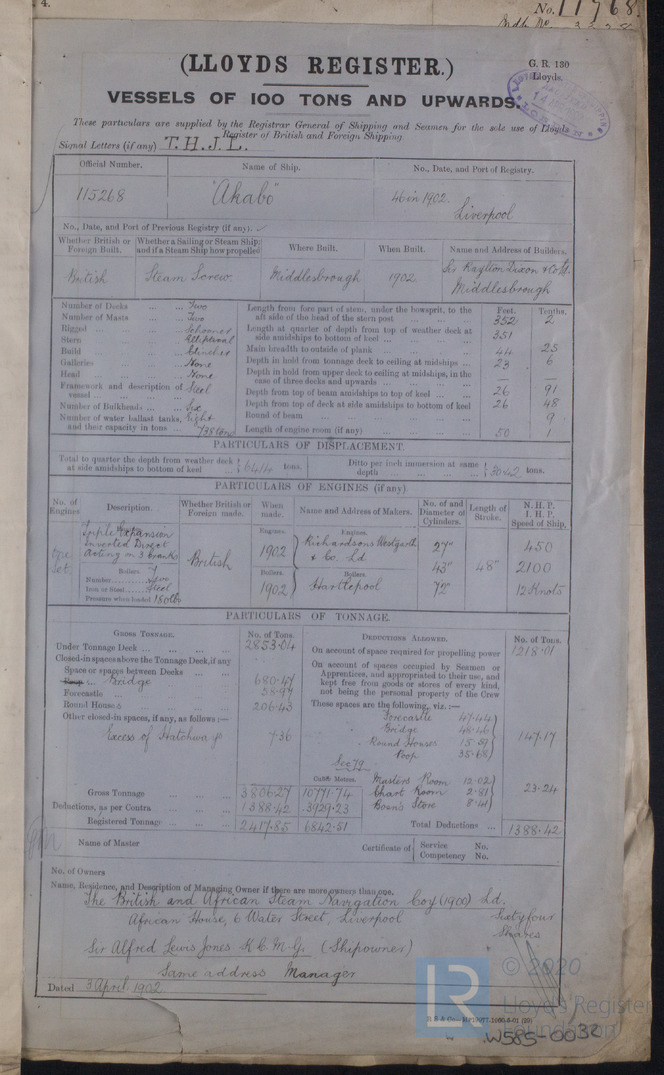 4.
No. 11768
(LLOYDS REGISTER.)
G. R. 130
Lloyds.
VESSELS OF 100 TONS AND UPWARDS.
These particulars are supplied by the Registrar General of Shipping and Seamen for the sole use of Lloyds
Register of British and Foreign Shipping.
Signal Letters (if any) T. H. J. L.
Official Number. Name of Ship. No., Date, and Port of Registry.
115268 "Akabo" 46 in 1902. Liverpool
No., Date, and Port of Previous Registry (if any).
Whether British or Foreign Built. Whether a Sailing or Steam Ship; and if a Steam Ship how propelled Where Built. When Built. Name and Address of Builders.
British Steam Screw Middlesbrough 1902 Sir Raylton Dixon & Co Ld. Middlesbrough
Number of Decks Two
Number of Masts Two
Rigged Schooner
Stern Elliptical
Build Clincher
Galleries None
Head None
Framework and description of vessel Steel
Number of Bulkheads Six
Number of water ballast tanks, and their capacity in tons Eight 738 tons
Feet. Tenths.
Length from fore part of stem, under the bowsprit, to the aft side of the head of the stern post 352 2
Length at quarter of depth from top of weather deck at side amidships to bottom of keel 351
Main breadth to outside of plank 44 25
Depth in hold from tonnage deck to ceiling at midships 23 6
Depth in hold from upper deck to ceiling at midships, in the case of three decks and upwards — —
Depth from top of beam amidships to top of keel 26 91
Depth from top of deck at side amidships to bottom of keel 26 48
Round of beam 9
Length of engine room (if any) 50 1
PARTICULARS OF DISPLACEMENT.
Total to quarter the depth from weather deck at side amidships to bottom of keel 6414 tons. Ditto per inch immersion at same depth 30.42 tons.
PARTICULARS OF ENGINES (if any).
No. of Engines Description. Whether British or Foreign made. When made. Name and Address of Makers. No. of and Diameter of Cylinders. Length of Stroke. N. H. P. I. H. P. Speed of Ship.
One Set Triple Expansion Inverted Direct Acting on 3 cranks
British
Engines. 1902
Engines. Richardsons Westgarth & Co. Ld
Boilers. 1902
Boilers. Hartlepool
27" 43" 72"
48"
450
2100
12 Knots
Boilers
Number
Iron or Steel Steel
Pressure when loaded 180 lbs
PARTICULARS OF TONNAGE.
GROSS TONNAGE. No. of Tons. DEDUCTIONS ALLOWED. No. of Tons.
Under Tonnage Deck 2853.04
Closed-in spaces above the Tonnage Deck, if any
Space or spaces between Decks
Poop Bridge 680.47
Forecastle 58.97
Round House s 206.43
Other closed-in spaces, if any, as follows:—
Excess of Hatchways 7.36
On account of space required for propelling power 1218.01
On account of spaces occupied by Seamen or Apprentices, and appropriated to their use, and kept free from goods or stores of every kind, not being the personal property of the Crew
These spaces are the following, viz.:—
Forecastle 47.44
Bridge 48.46
Round Houses 15.59
Poop 35.68
147.17
Sec 79
Masters Room 12.02
Chart Room 2.81
Bosn's Store 8.41
23.24
Cubic Metres.
Gross Tonnage 3806.27 10771.74
Deductions, as per Contra 1388.42 3929.23
Registered Tonnage 2417.85 6842.51
Total Deductions 1388.42
Name of Master
Certificate of Service No.
Competency No.
No. of Owners
Name, Residence, and Description of Managing Owner if there are more owners than one.
The British and African Steam Navigation Coy (1900) Ld.
African House, 6 Water Street, Liverpool Sixty four Shares
Sir Alfred Lewis Jones K.C.M.G. (Shipowner)
Same address Manager
Dated 3 April 1902
LR
© 2020
Lloyd's Register
Foundation
W585-0032